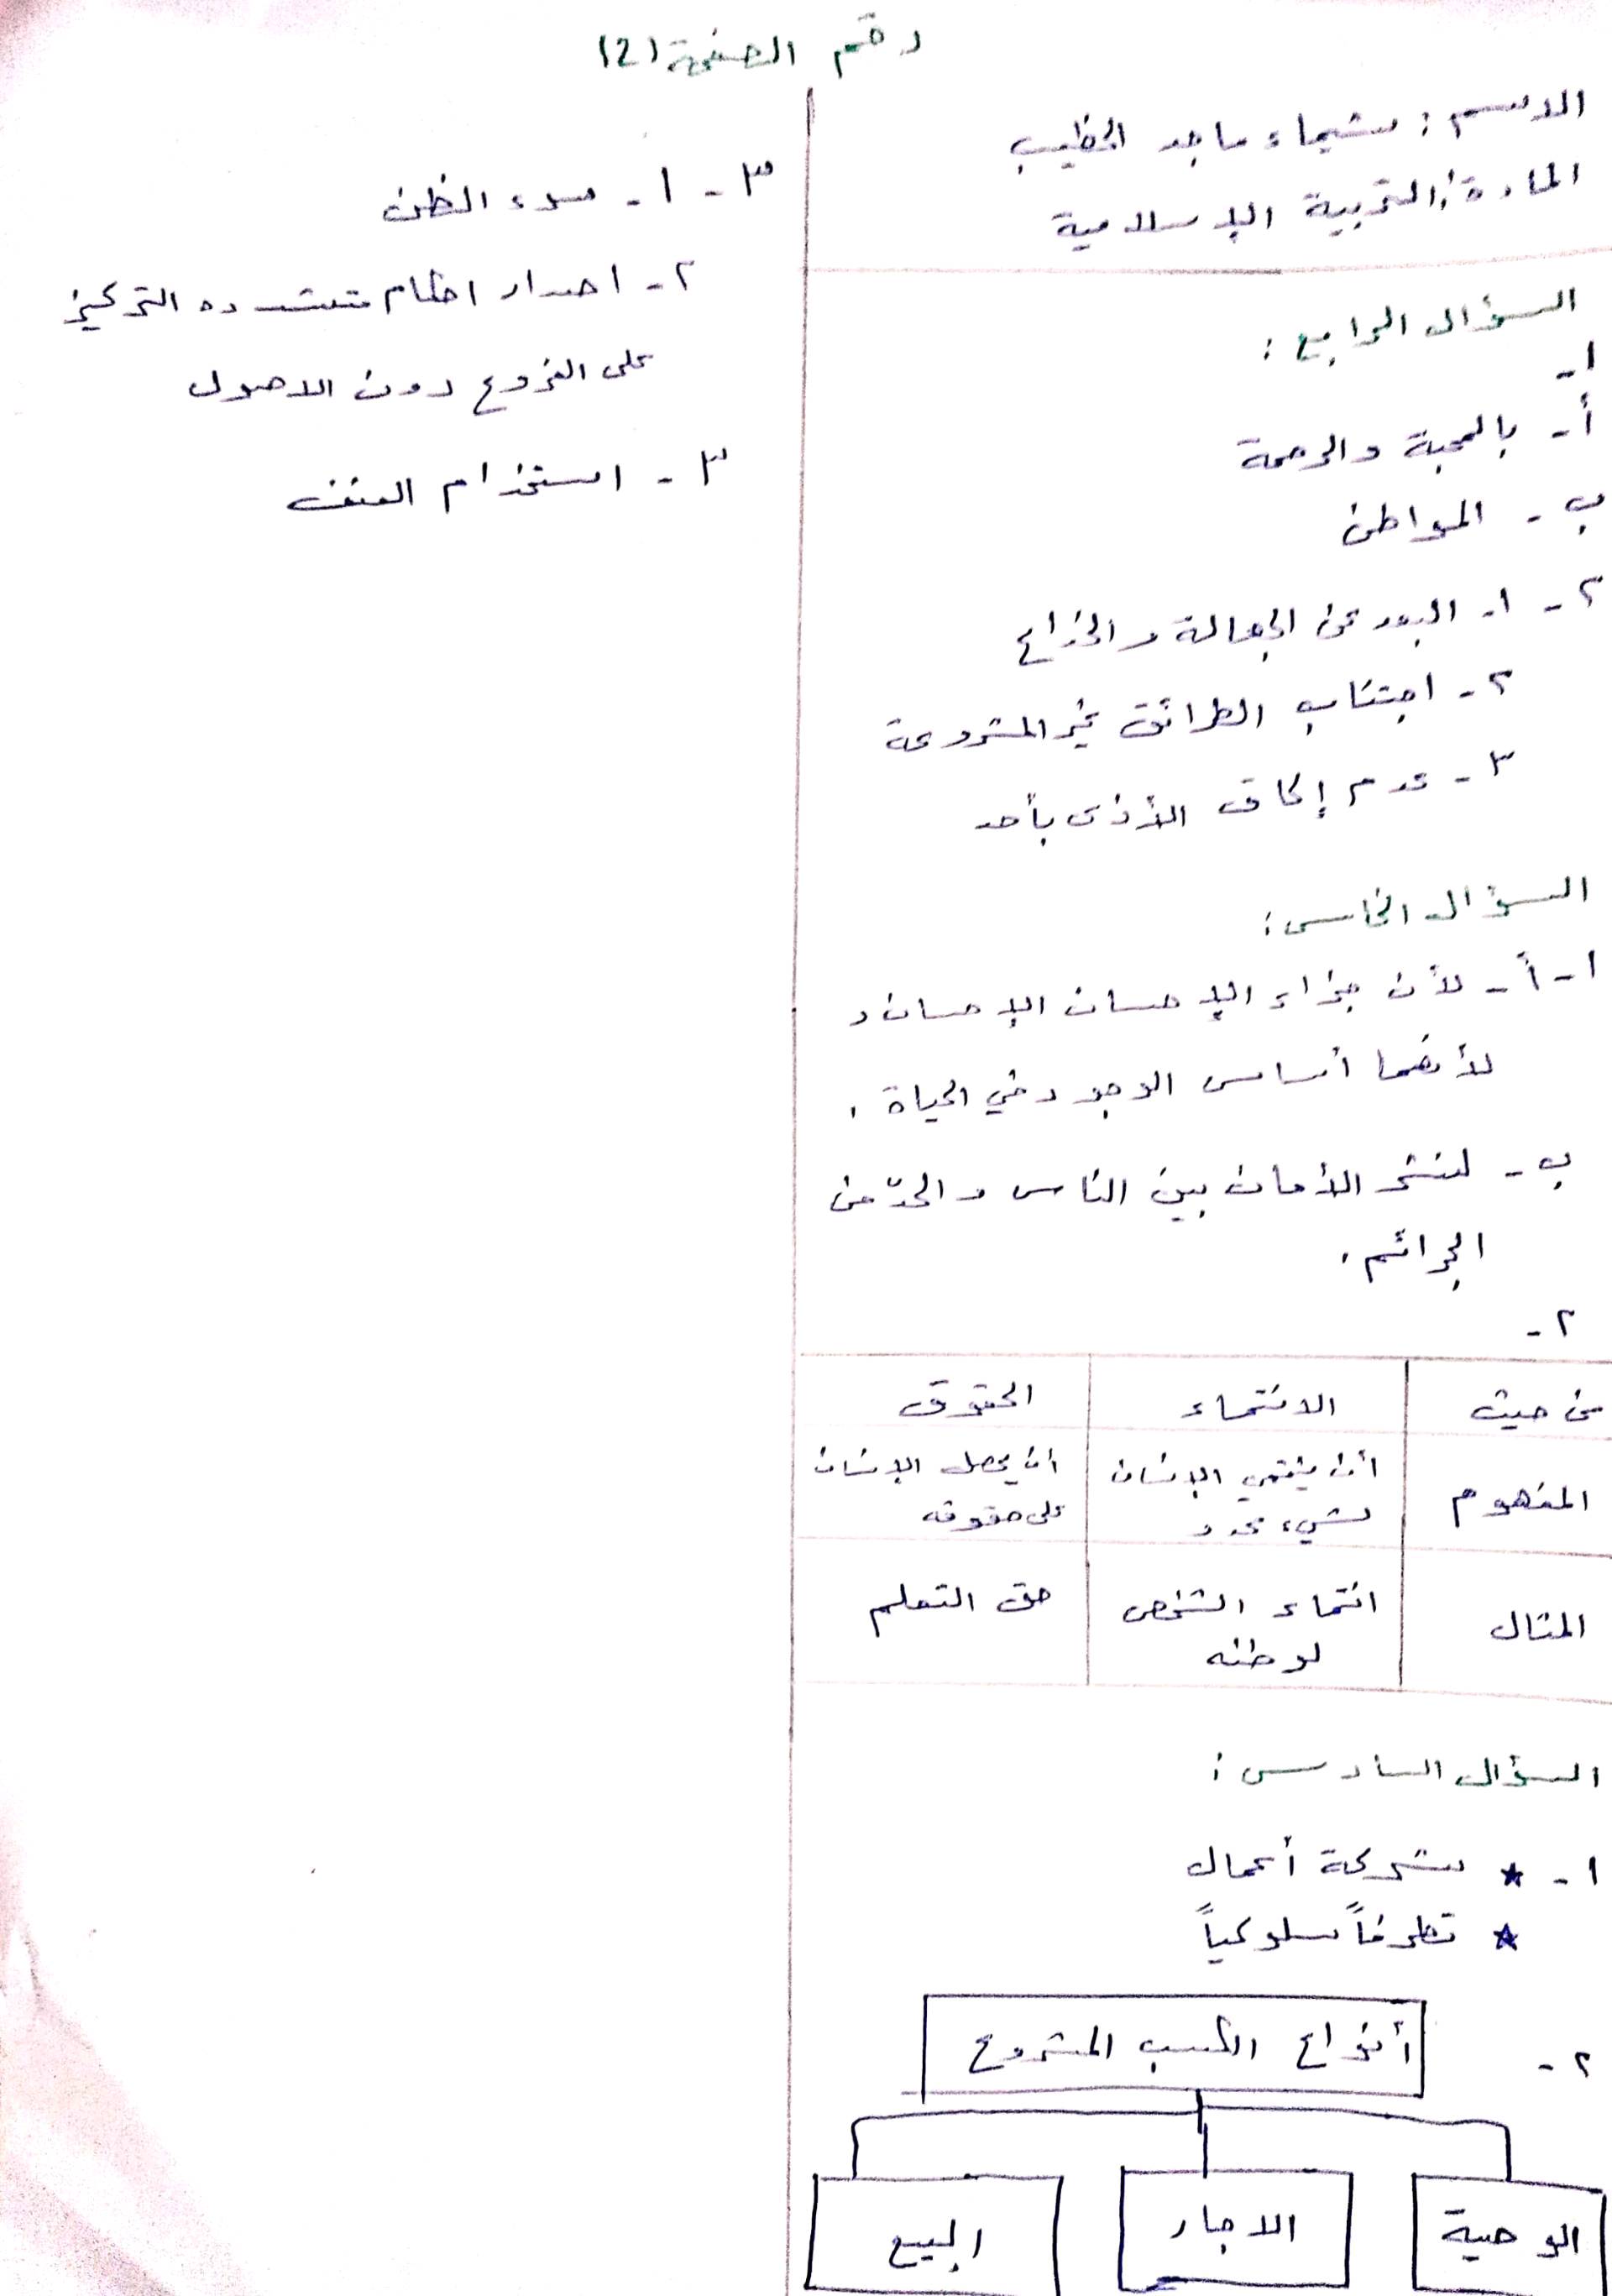 رقم الصفحة (2)
الاسم : شيماء ماجد الخطيب
المادة : التربية الإسلامية
السؤال الرابع :
١-
أ- بالمحبة والرحمة
ب - المواطن
٢ - ١- البعد عن الجهالة والخداع
٢ - اجتناب الطرائق غير المشروعة
٣ - عدم إلحاق الأذى بأحد
السؤال الخامس :
١ - أ - لأن جزاء الإحسان الإحسان و
لأنهما أساس الوجود في الحياة .
ب - لنشر الأمان بين الناس والحدّ من
الجرائم .
٢ -
من حيث | الانتماء | الحقوق
المفهوم | أن ينتمي الإنسان لشيء محدد | أن يحصل الإنسان على حقوقه
المثال | انتماء الشخص لوطنه | حق التعلم
السؤال السادس :
١ - ★ شركة أعمال
★ تطرفاً سلوكياً
٢ - أنواع الكسب المشروع
الوصية | الاجار | البيع
٣ - ١ - سوء الظن
٢ - اصدار احكام متشدده التركيز
على الفروع دون الاصول
٣ - استخدام العنف